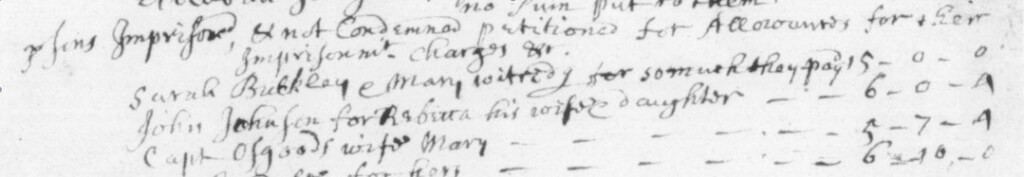 no sum put to them
psons Imprisoned, & not Condemned petitioned for Allowances for their
Imprisonmt. Charges &c.
Sarah Buckley & Mary witredg for somuch they payd 15 - 0 - 0
John Johnson for Rebecca his wife & daughter - - - 6 - 0 - 4
Capt Osgoods wife Mary - - - - - - 5 - 7 - 4
for hers - - - - - - 6 - 10 - 0